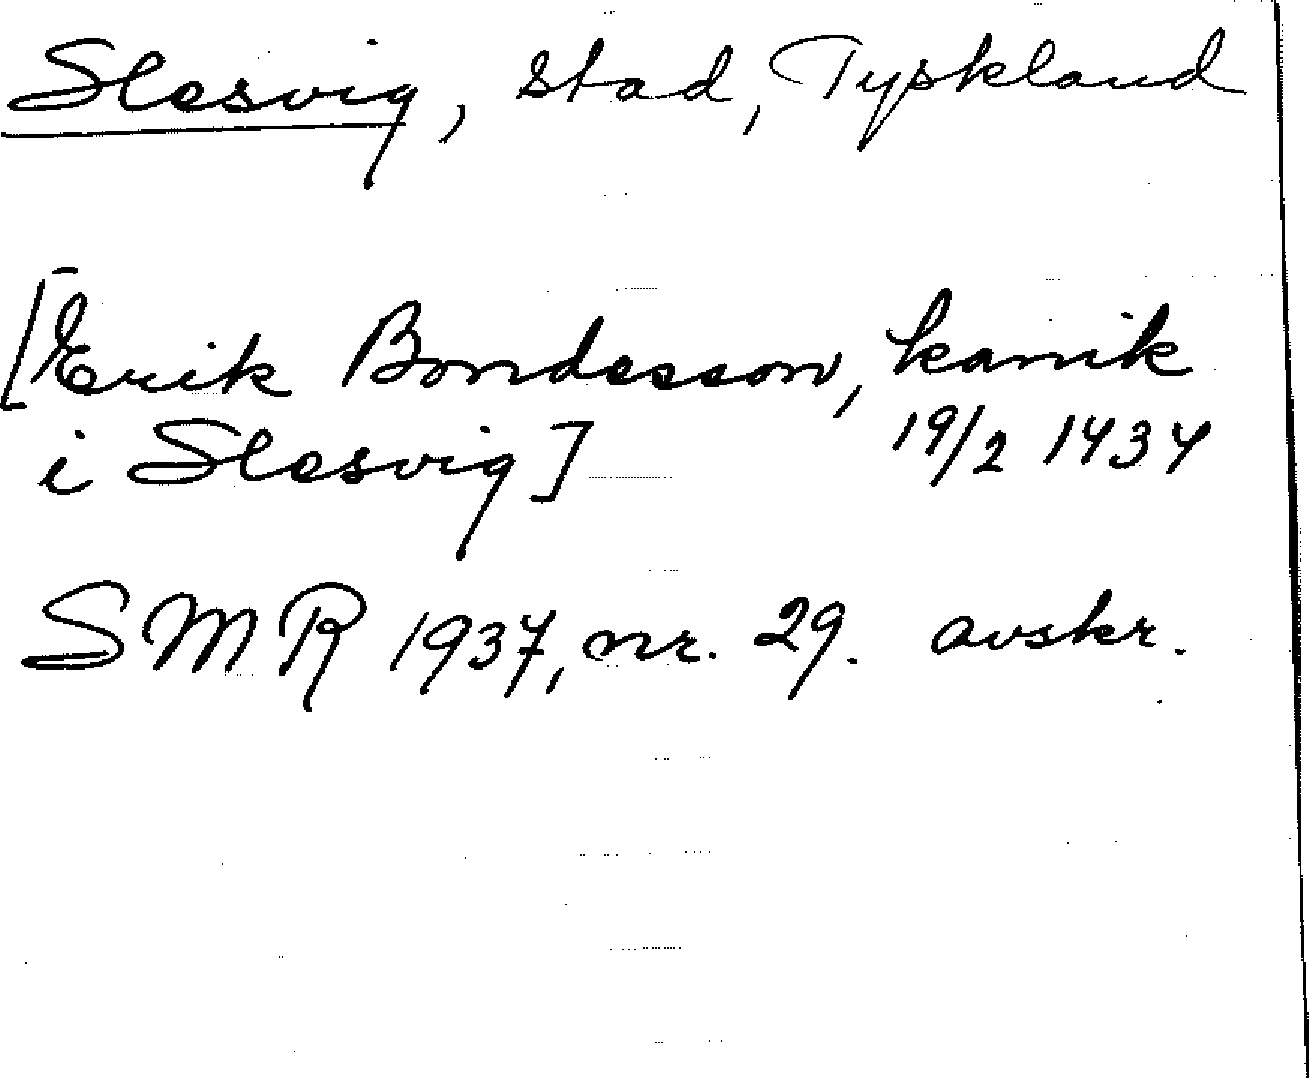 Slesvig, stad, Tyskland
[Erik Bondesson, kanik
i Slesvig] 19/2 1434
SMR 1937, nr. 29. avskr.